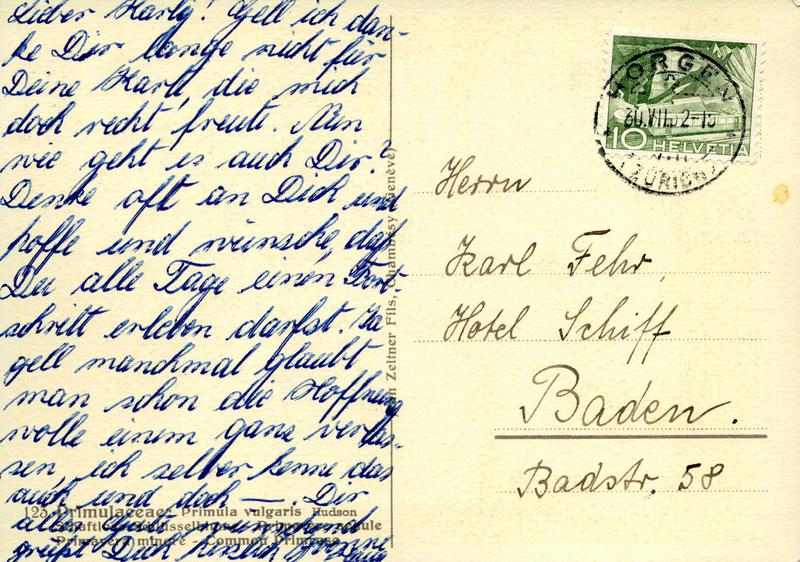 Lieber Karly! Gell ich dan-
ke Dir lange nicht für
Deine Karte, die mich
doch recht freute. Nun
wie geht es auch Dir?
Denke oft an Dich und
hoffe und wünsche, daß
Du alle Tage einen Fort
schritt erleben darfst. Ja
gell manchmal glaubt
man schon die Hoffnung
wolle einem ganz verlas-
sen, ich selber kenne das
auch und doch —. Dir
alles Gute und
grüßt Dich herzlich
125 Primulaceae: Primula vulgaris Hudson
Schaftlose Schlüsselblume - Primevère
Primavera minore - Common Primrose
Zeltner Fils, (Chambésy Genève)
HORGEN
30.VII.52-15
(ZÜRICH)
10 HELVETIA
Herrn
Karl Fehr,
Hotel Schiff
Baden.
Badstr. 58